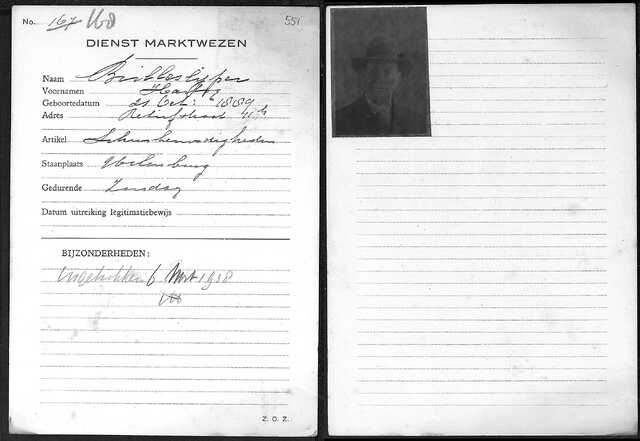 No. 167 160 551
DIENST MARKTWEZEN
Naam
Voornamen Hartog
Geboortedatum 21 Oct: 1889
Adres 41
Artikel Schoenbenoodigheden
Standplaats Uilenburg
Gedurende Zondag
Datum uitreiking legitimatiebewijs
BIJZONDERHEDEN:
Ingetrokken 6 Mrt 1938
160
Z. O. Z.